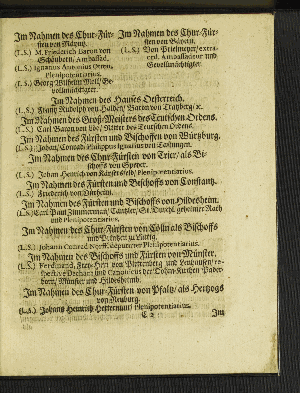 Im Nahmen des Chur-Für-
sten von Mäyntz.
(L.S.) M. Friederich Baron von
Schönborn, Ambassad.
(L.S.) Ignatius Antonius Otten,
Plenipotentiarius.
(L.S.) Georg Wilhelm Moll/ Be-
vollmächtigter.
Im Nahmen des Chur-Für-
sten von Bäyern.
(L.S.) Von Prielmeyer/ extra-
ord. Ambassadeur und
Gevollmächtigter.
Im Nahmen des Hauses Oesterreich.
(L.S.) Frantz Rudolph von Halden/ Baron von Tratzberg/ ꝛc.
Im Nahmen des Groß-Meisters des Teutschen Ordens.
(L.S.) Carl Baron von Loe/ Ritter des Teutschen Ordens.
Im Nahmen des Fürsten und Bischoffen von Würtzburg.
(L.S.) Johan Conradt Philippus Ignatius von Tastungen.
Im Nahmen des Chur-Fürsten von Trier/ als Bi-
schoffs von Speyer.
(L.S.) Johan Henrich von Plenipotentiarius.
Im Nahmen des Fürsten und Bischoffs von Constantz.
(L.S.) Friederich von Dürheim.
Im Nahmen des Fürsten und Bischoffs von Hildesheim.
(L.S.) Carl Paul Zimmerman/ Cantzler/ Sr. Durchl. geheimer Rath
und Plenipotentiarius.
Im Nahmen des Chur-Fürsten von Cölln als Bischoffs
und Printzen zu Lüttig.
(L.S.) Johann Conrad Norff/ Deputirter Plenipotentiarius.
Im Nahmen des Bischoffs und Fürsten von Münster.
(L.S.) Ferdinand, Frey-Herr von Plettenberg und Lenhausen/
Dechant und Canonicus der Dohm-Kirchen Pader-
born, Münster und Hildesheimb.
Im Nahmen des Chur-Fürsten von Pfaltz/ als Hertzogs
von Neuburg.
(L.S.) Johann Heinrich Hetterman/ Plenipotentiarius.
C 2
Im